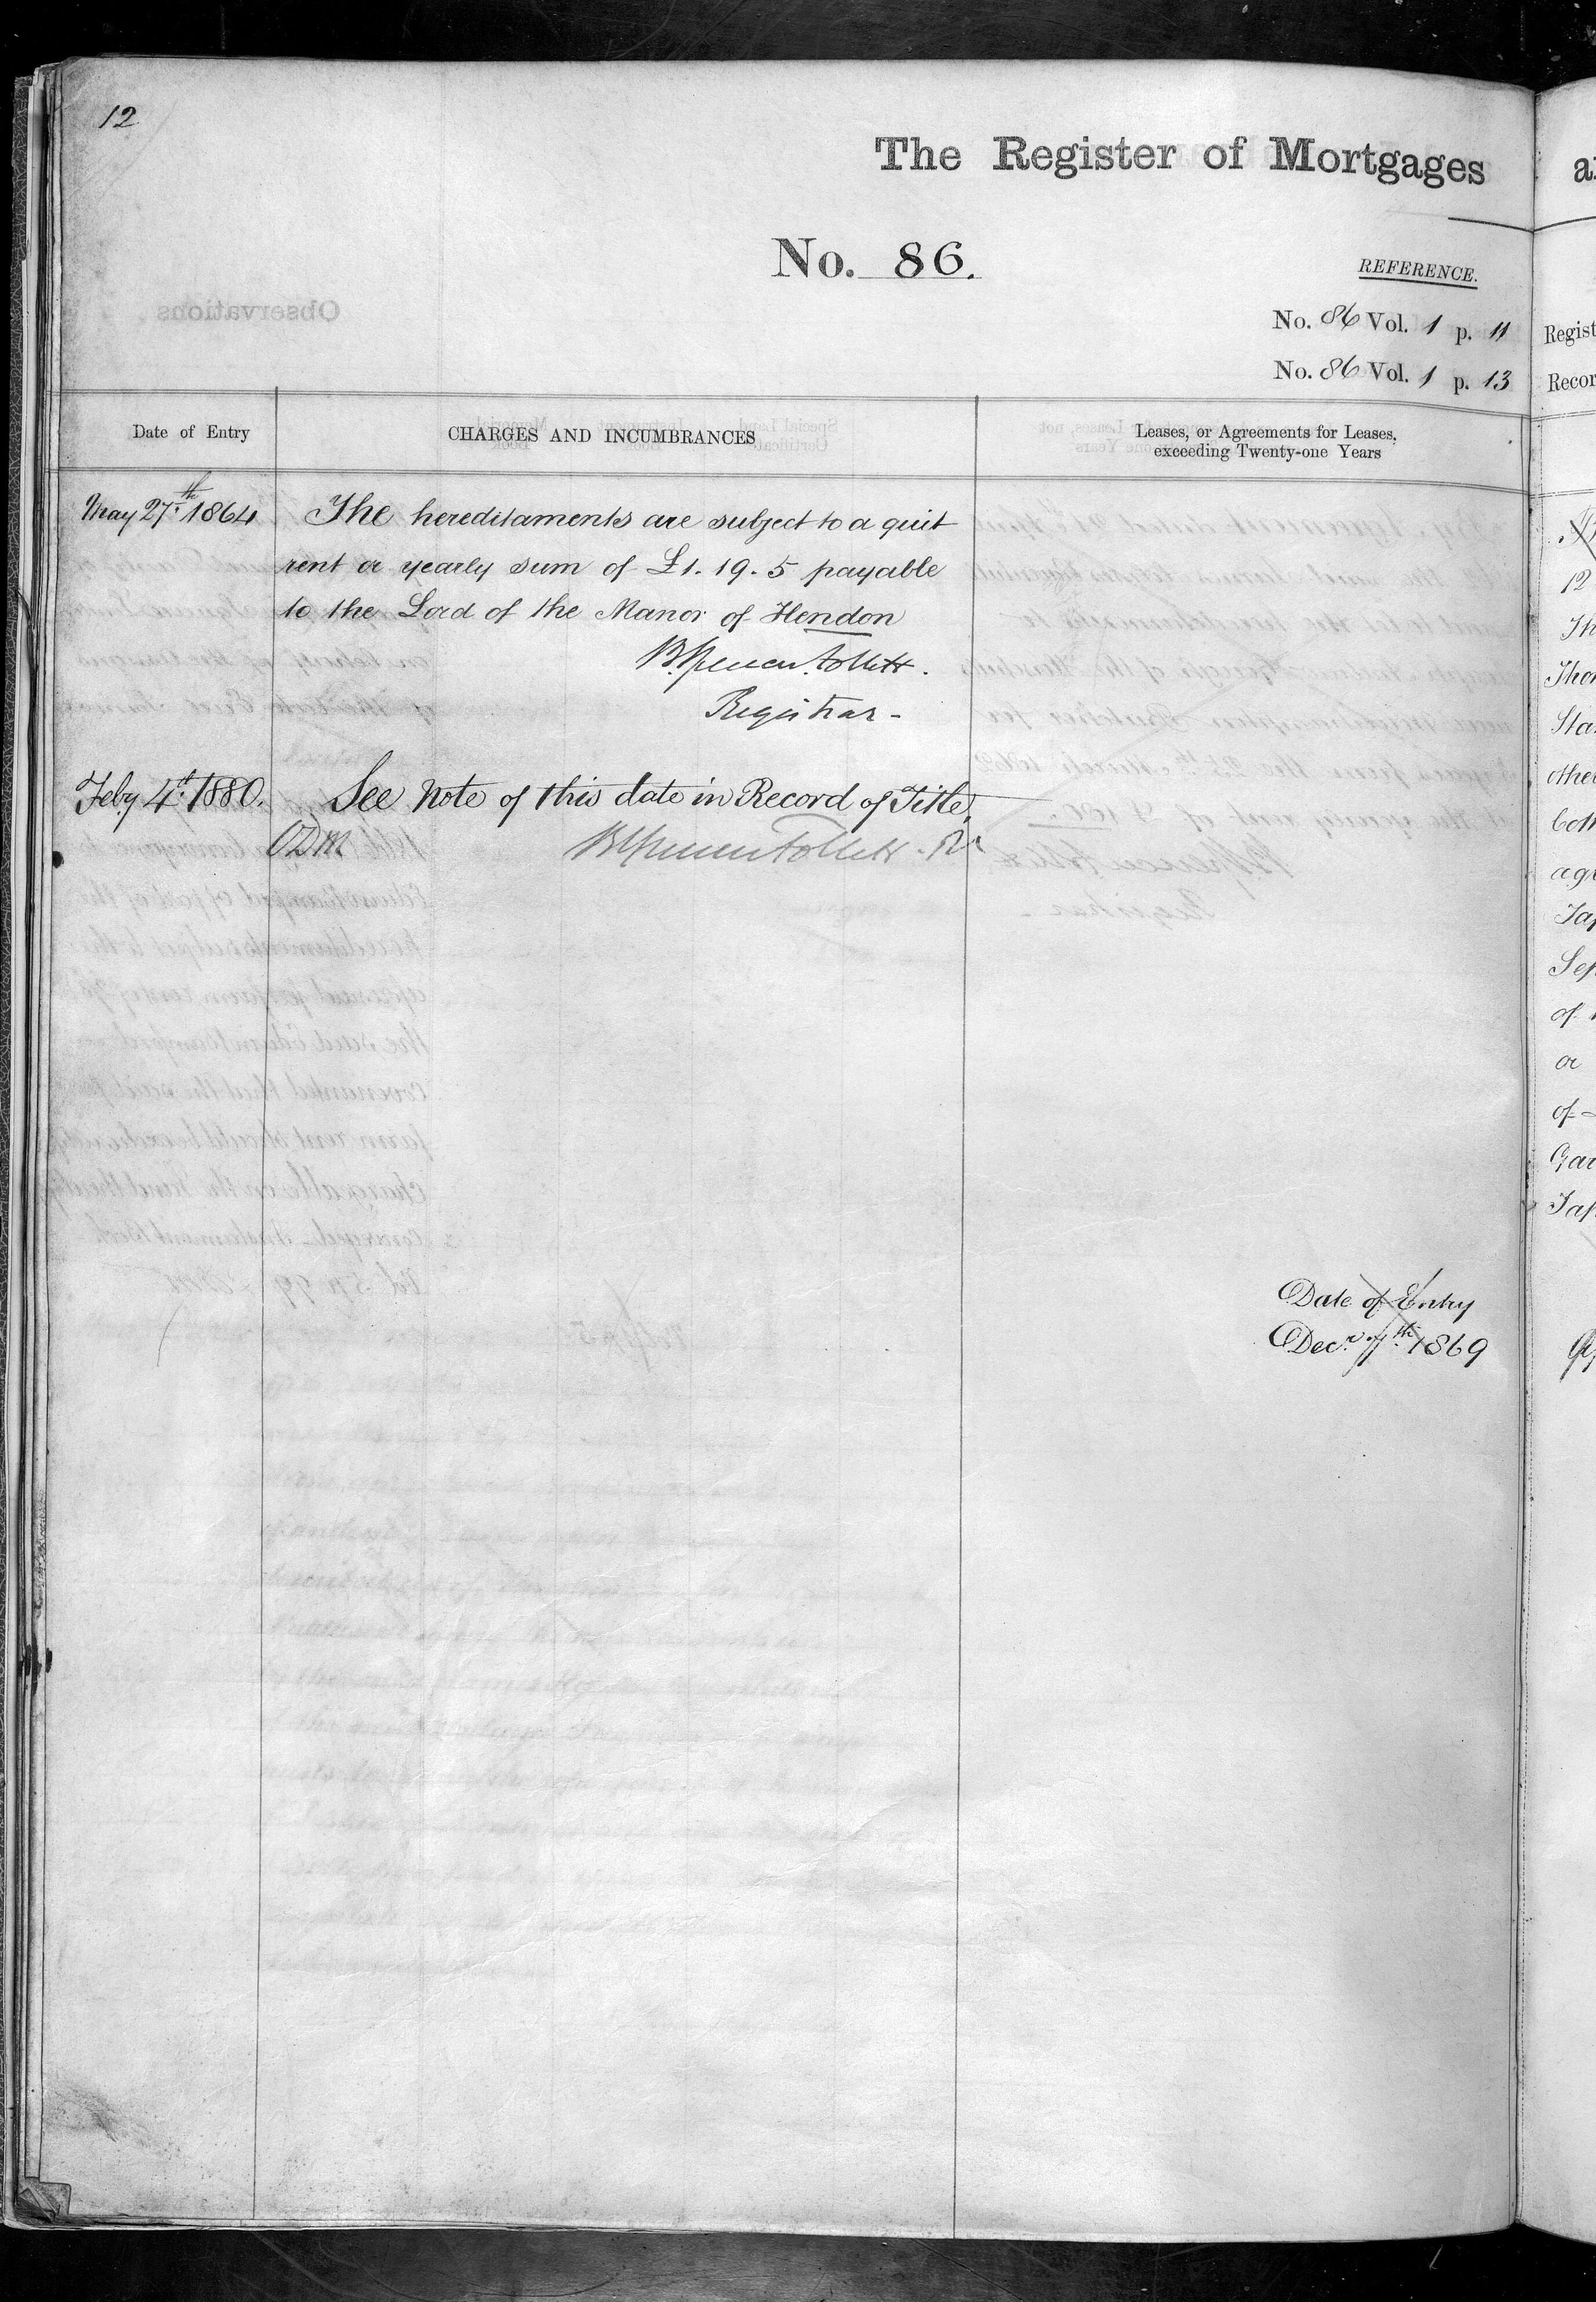 12
The Register of Mortgages
No. 86.
REFERENCE.
No. 86 Vol. 1 p. 11
No. 86 Vol. 1 p. 13
Regist
Recor
Observations
Date of Entry
CHARGES AND INCUMBRANCES
Leases, or Agreements for Leases,
exceeding Twenty-one Years
May 27th. 1864
The hereditaments are subject to a quit
rent or yearly sum of £1. 19. 5 payable
to the Lord of the Manor of Hendon
B. Spencer Follett.
Registrar-
Feby 4th. 1880.
See Note of this date in Record of Title.
ODM
B Spencer Follett. Rr
Date of Entry
Decr. 7th. 1869
12
Thor
Sta
othe
both
agr
Sep
of
or
of-
Gar